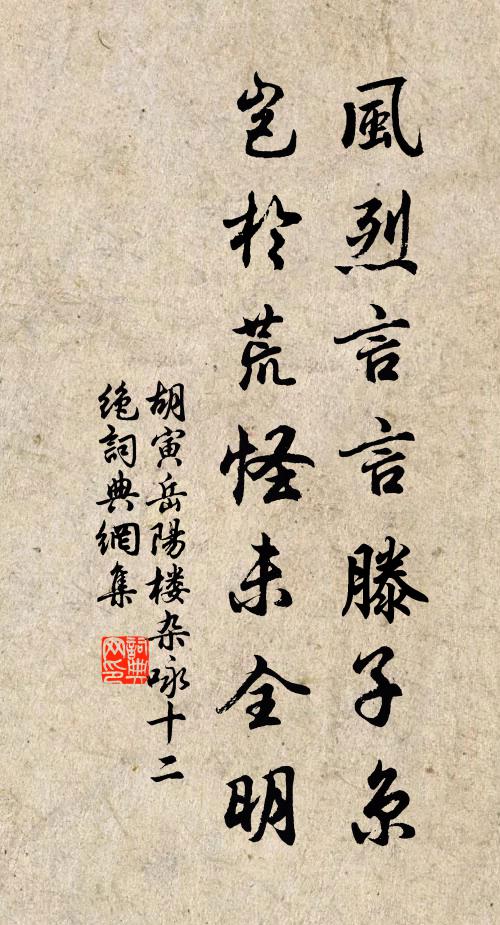 風烈言言滕子京
豈於荒怪未全明
胡寅岳陽楼杂咏十二
絶詞典網集
詞典
网印